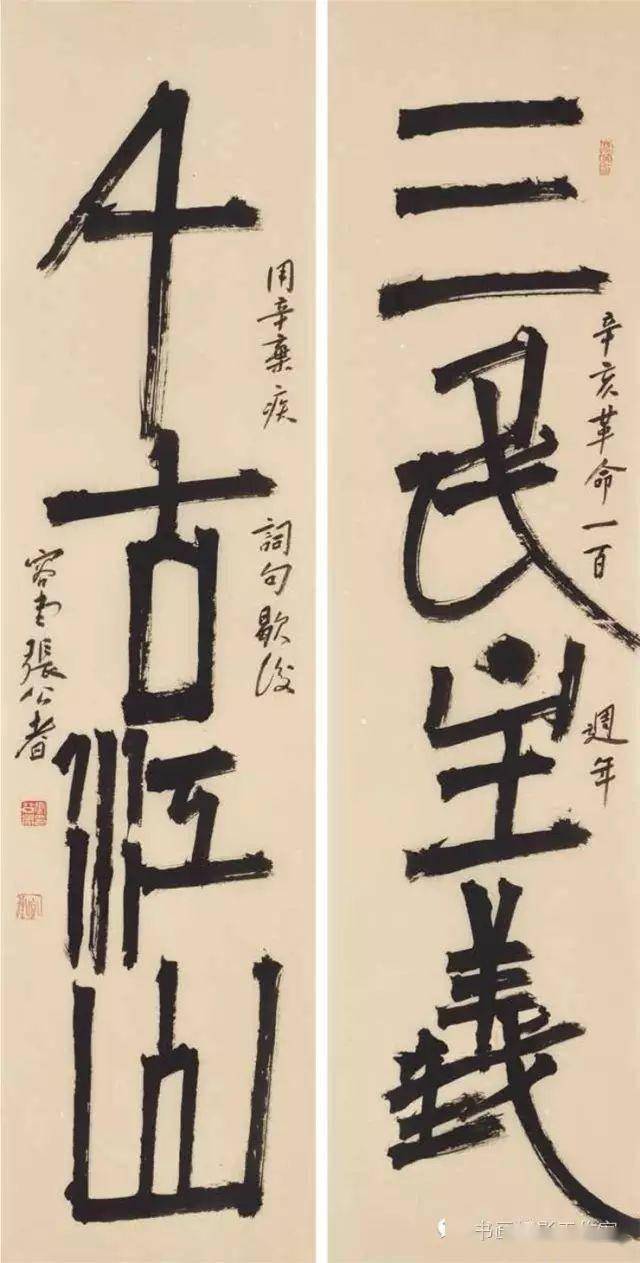 三民主義
辛亥革命一百
週年
千古江山
用辛棄疾
詞句歇後
容堂張公者